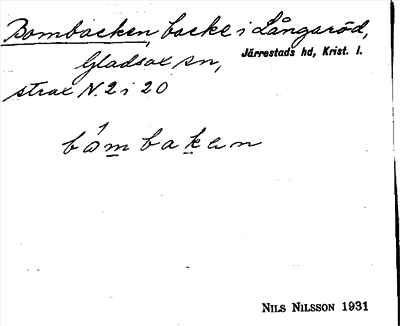 Bombacken, backe i Långaröd,
Gladsax sn,
Järrestads hd, Krist. l.
strax N. 2 i 20
båmbaken
NILS NILSSON 1931